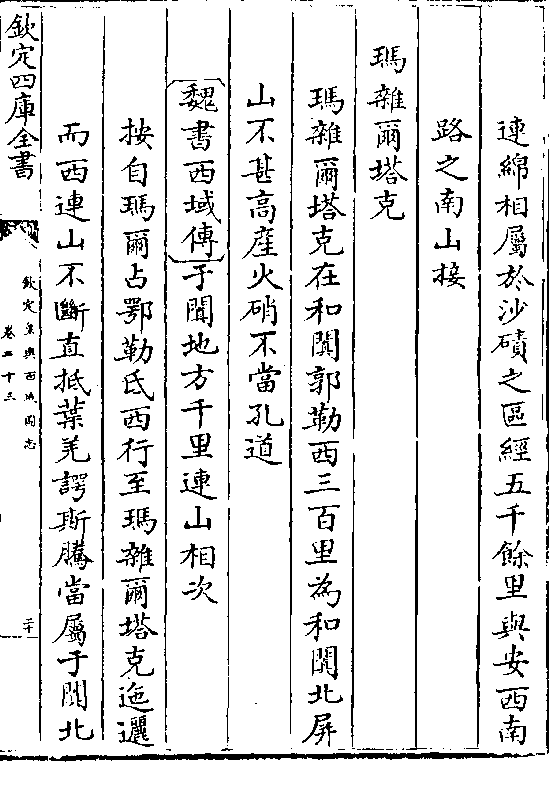 連綿相屬於沙磧之區經五千餘里與安西南
路之南山接
瑪雜爾塔克
瑪雜爾塔克在和闐郭勒西三百里為和闐北屏
山不甚高産火硝不當孔道
魏書西域傳于闐地方千里連山相次
按自瑪爾占鄂勒氐西行至瑪雜爾塔克迤邐
而西連山不斷直抵葉羌諤斯騰當屬于闐北
欽定四庫全書
欽定皇輿西域圖志
卷二十三
二十